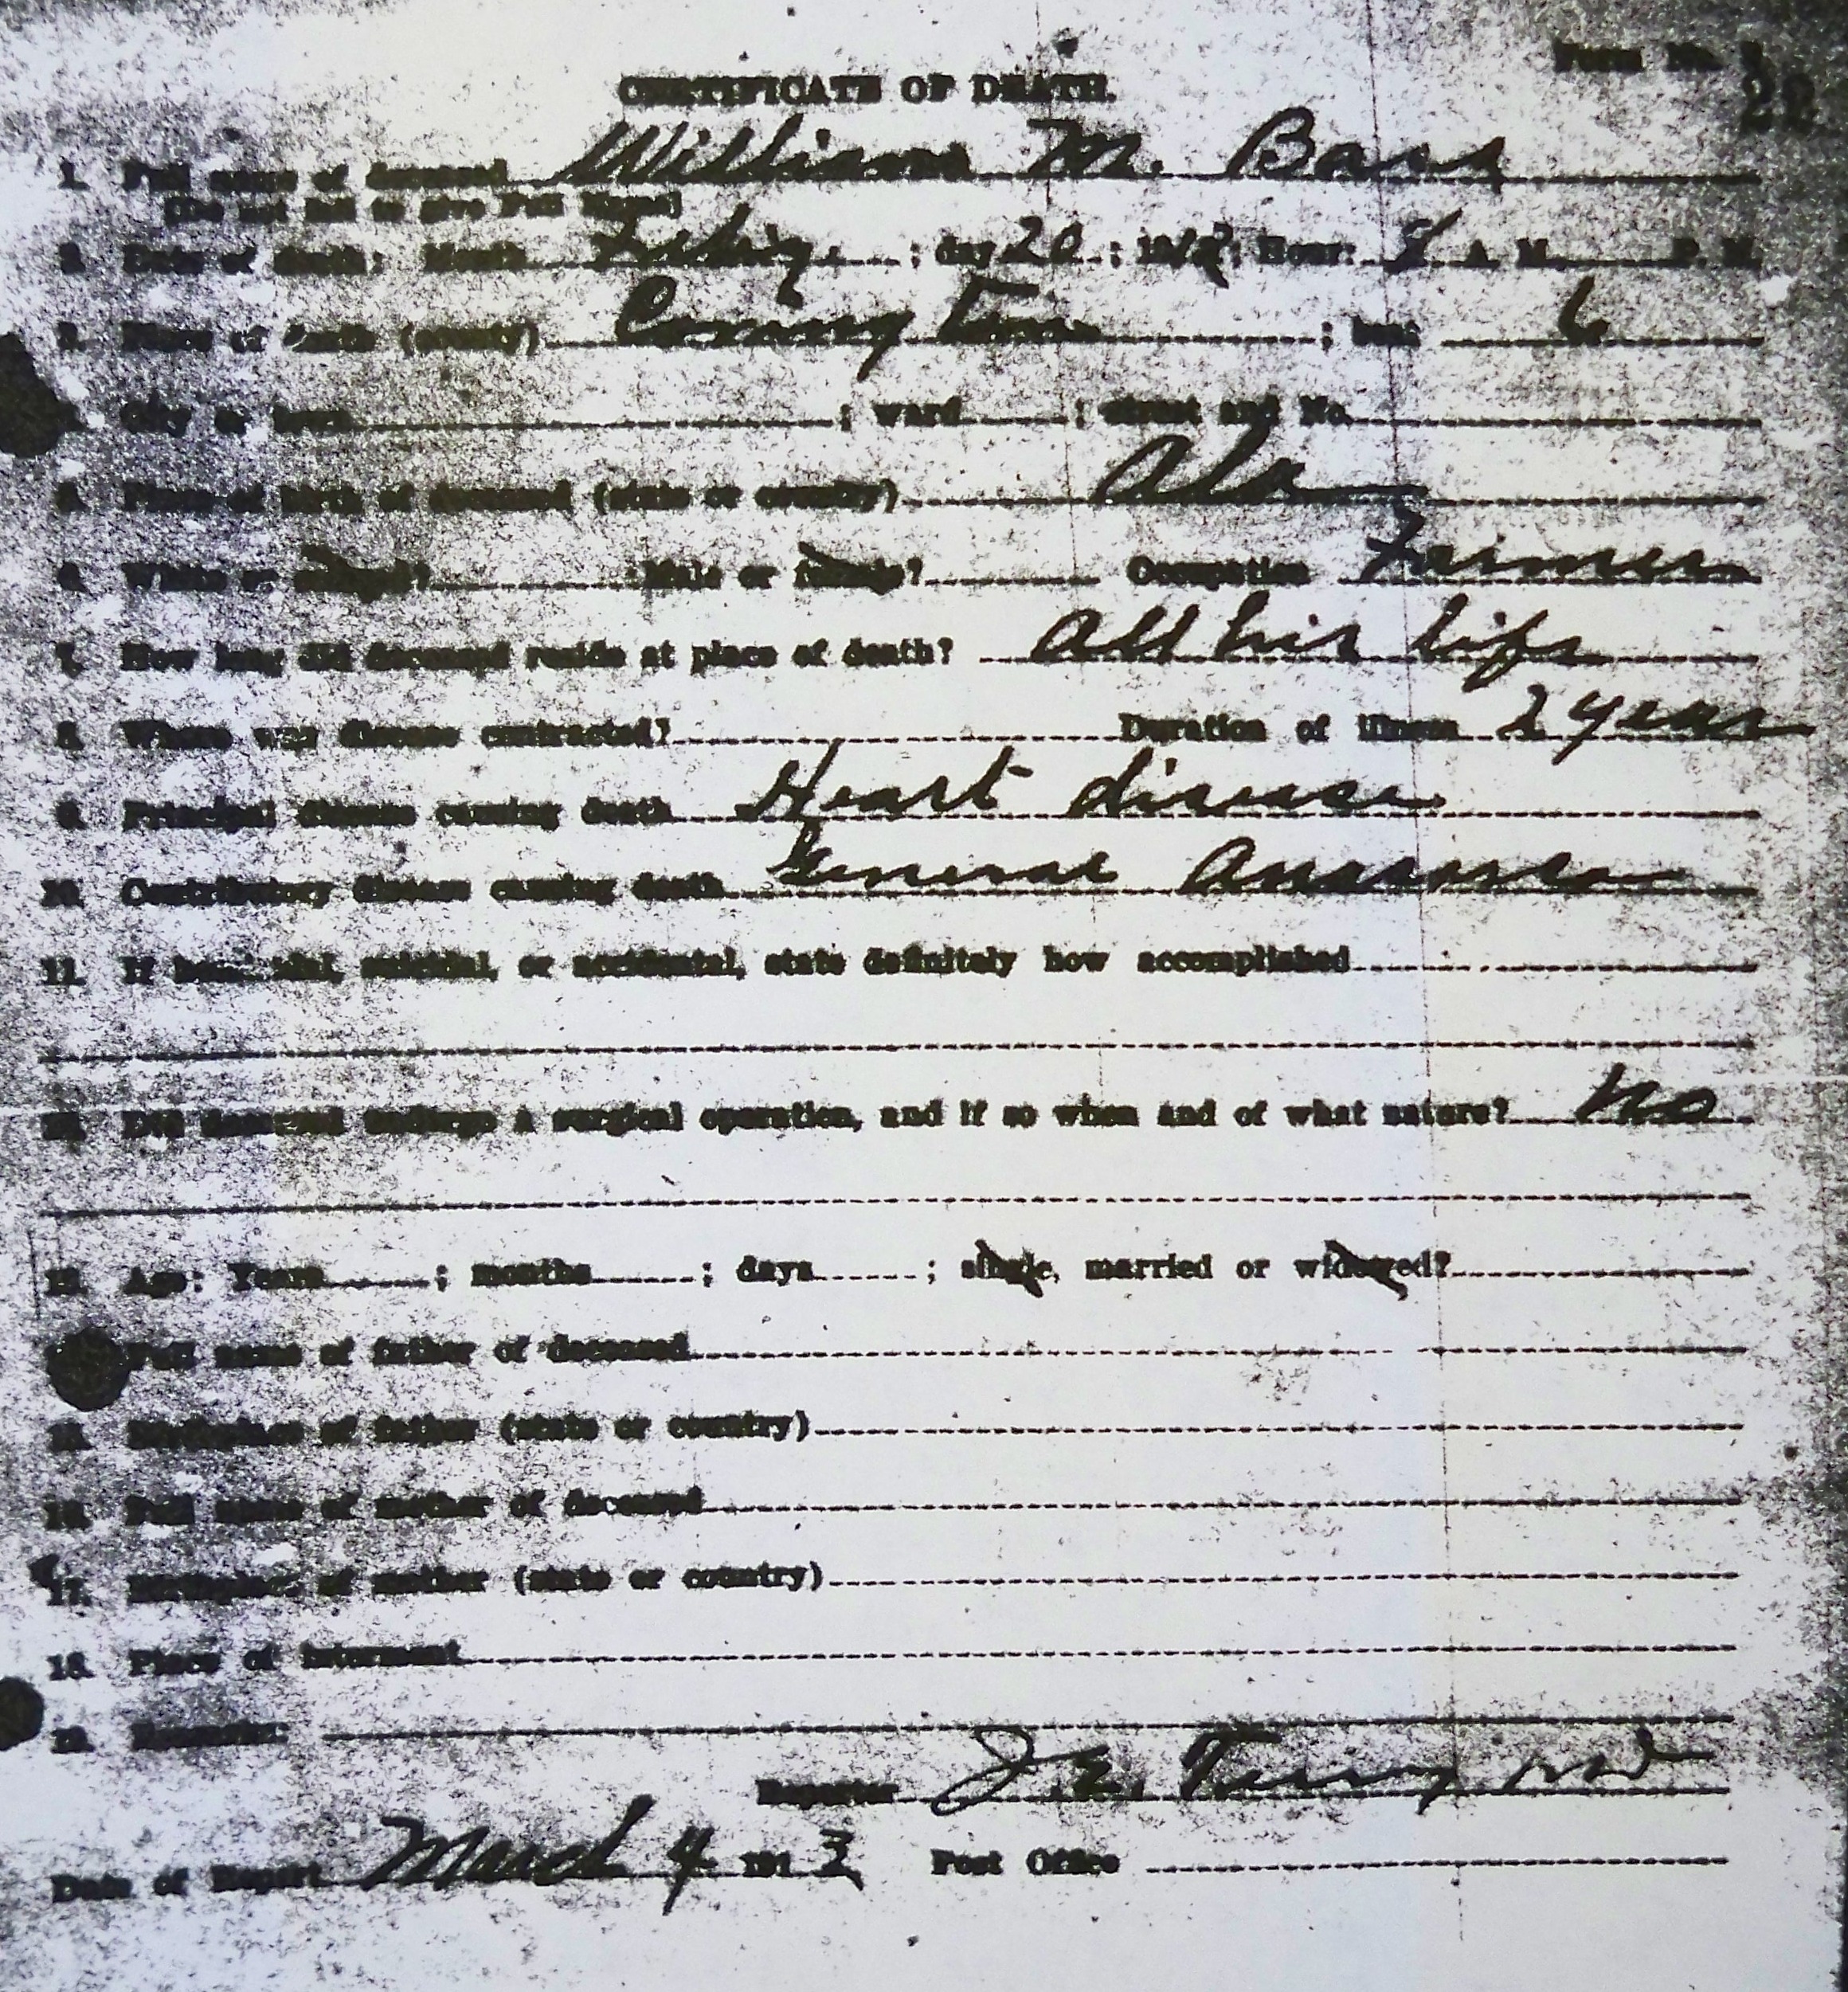 Form No.
22
CERTIFICATE OF DEATH.
1. Full name of deceased William M. Bass
(Do not fail to give Full Name)
2. Date of death: Month Febry. ; day 20 ; 191 ; Hour: A. M. P. M.
3. Place of death (county) Covington ; beat 6
City or town ; ward ; street and No.
5. Place of birth of deceased (state or country) Ala
6. White or ? Male or female? Occupation Farmer
7. How long did deceased reside at place of death? All his life
8. Where was disease contracted? Duration of illness 2 years
9. Principal disease causing death Heart disease
10. Contributory disease causing death General Anasarca
11. If homicidal, suicidal, or accidental, state definitely how accomplished
12. Did deceased undergo a surgical operation, and if so when and of what nature? No
13. Age: Years ; months ; days ; single, married or widowed?
Full name of father of deceased
15. Birthplace of father (state or country)
16. Full name of mother of deceased
17. Birthplace of mother (state or country)
18. Place of interment
19. Remarks:
Reporter J. E. Terry MD
Date of Report March 4 1913 Post Office